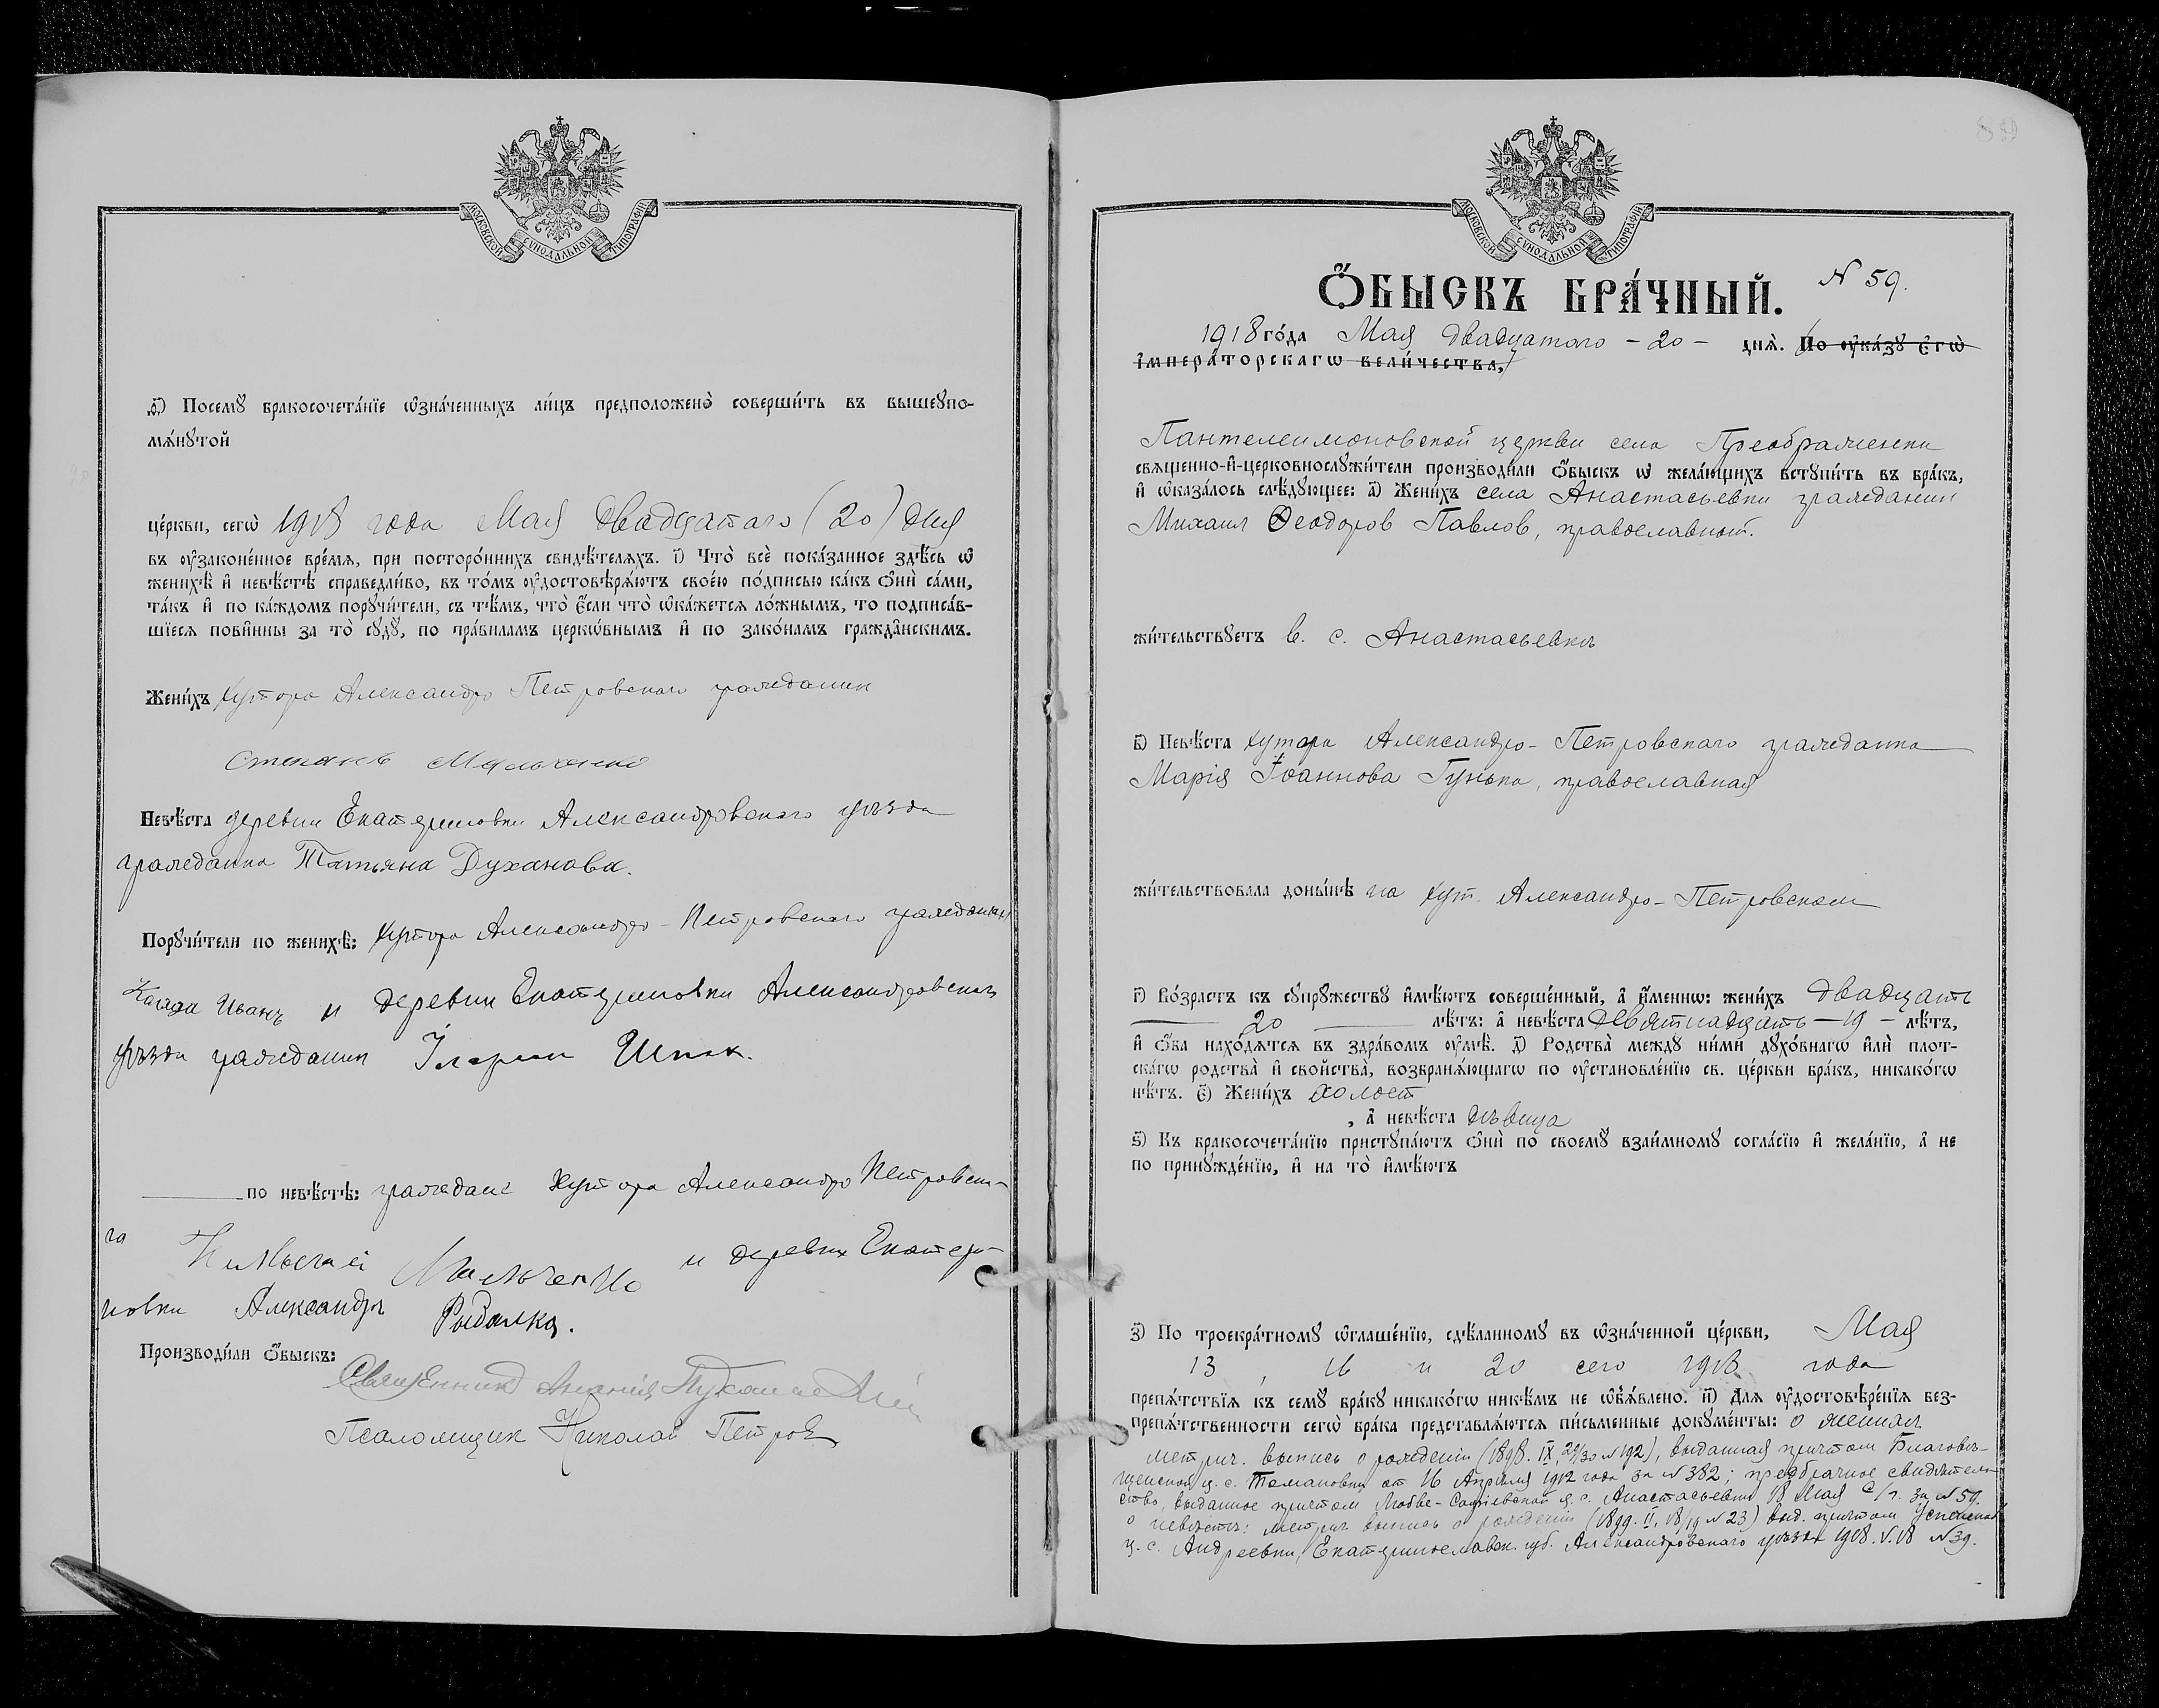 МОСКОВСКОЙ СѴНОДАЛЬНОЙ ТИПОГРАФІИ
ѳ҃) Посемꙋ бракосочета́нїе ѡ҆зна́ченныхъ ли́цъ предположено̀ соверши́ть въ вышеꙋпо-
мѧ́нꙋтой
це́ркви, сегѡ̀ 1918 года Мая двадцатаго (20) дня
въ ᲂу҆законе́нное вре́мѧ, при посторо́ннихъ свидѣ́телѧхъ. і҃) Что̀ всѐ пока́занное здѣ́сь ѡ҆
женихѣ̀ и҆ невѣ́стѣ справедли́во, въ то́мъ ᲂу҆достовѣрѧ́ютъ свое́ю по́дписью ка́къ ѻ҆нѝ са́ми,
та́къ и҆ по ка́ждомъ порꙋчи́тели, съ тѣ́мъ, что̀ є҆́сли что̀ ѡ҆ка́жетсѧ ло́жнымъ, то подписа́в-
шїесѧ пови́нны за то̀ сꙋдꙋ̀, по пра́виламъ церкѡ́внымъ и҆ по зако́намъ гражда́нскимъ.
Жени́хъ хутора Александро Петровского гражданин
Степанъ
Невѣ́ста деревни Екатериновки Александровского уѣзда
гражданка Татьяна Духанова.
Порꙋчи́тели по женихѣ̀: хутора Александро-Петровского гражданин
Иванъ и деревни Екатериновки Александровского
уѣзда гражданин Шпак.
по невѣ́стѣ: граждане хутора Александро Петровско-
го и деревни Екатери-
новки Александръ Рыбалка.
Производи́ли ѻ҆́быскъ:
Священник
Псаломщик Николай Петров
89
МОСКОВСКОЙ СѴНОДАЛЬНОЙ ТИПОГРАФІИ
Ѻ҆́БЫСКЪ БРА́ЧНЫЙ. N 59.
1918 го́да Мая двадцатого - 20 - днѧ̀. По ᲂу҆ка́зꙋ є҆гѡ̀
і҆мпера́торскагѡ вели́чества,
Пантелеимоновской церкви села Преображенки
свѧщенно-и҆-церковнослꙋжи́тели производи́ли ѻ҆́быскъ ѡ҆ жела́ющихъ встꙋпи́ть въ бра́къ,
и҆ ѡ҆каза́лось слѣ́дꙋющее: а҃) Жени́хъ села Анастасьевки гражданин
Михаил Ѳеодоров Павлов, православный.
жи́тельствꙋетъ в. с. Анастасьевкѣ
в҃) Невѣ́ста хутора Александро-Петровского гражданка
Марія Іоаннова Гунька, православная
жи́тельствовала доны́нѣ на хут. Александро-Петровском
г҃) Во́зрастъ къ сꙋпрꙋ́жествꙋ и҆мѣ́ютъ соверше́нный, а҆ и҆́меннѡ: жени́хъ двадцать
20 лѣ́тъ: а҆ невѣ́ста девятнадцать - 19 - лѣ́тъ,
и҆ ѻ҆́ба нахо́дѧтсѧ въ здра́вомъ ᲂу҆мѣ̀. д҃) Родства̀ междꙋ ни́ми дꙋхо́внагѡ и҆лѝ плот-
ска́гѡ родства̀ и҆ свойства̀, возбранѧ́ющагѡ по ᲂу҆становле́нїю св. це́ркви бра́къ, никако́гѡ
нѣ́тъ. є҃) Жени́хъ холост
, а҆ невѣ́ста дѣвица
ѕ҃) Къ бракосочета́нїю пристꙋпа́ютъ ѻ҆нѝ по своемꙋ̀ взаи́мномꙋ согла́сїю и҆ жела́нїю, а҆ не
по принꙋжде́нїю, и҆ на то̀ и҆мѣ́ютъ
з҃) По троекра́тномꙋ ѡ҆глаше́нїю, сдѣ́ланномꙋ въ ѡ҆зна́ченной це́ркви, Мая
13, 16 и 20 сего 1918 года
препѧ́тствїѧ къ семꙋ̀ бра́кꙋ никако́гѡ никѣ́мъ не ѡ҆б̾ѧ́влено. и҃) Длѧ ᲂу҆достовѣре́нїѧ без-
препѧ́тственности сегѡ̀ бра́ка представлѧ́ютсѧ пи́сьменные докꙋме́нты: о женихѣ
метрич. выпись о рождении (1898. IX, 29/30 N 192), выданная причтом Благовѣ-
щенской ц. с. Томановки от 16 Апрѣля 1912 года за N 382; предбрачное свидѣтель-
ство, выданное причтом Софіевской ц. с. Анастасьевки 18 Мая с/г. за N 59.
о невѣстѣ: метрич. выпись о рождении (1899. II, 18/19 N 23) выд. причтом Успенской
ц. с. Андреевки, Екатеринославск. губ. Александровского уѣзда 1918. V. 18 N 39.